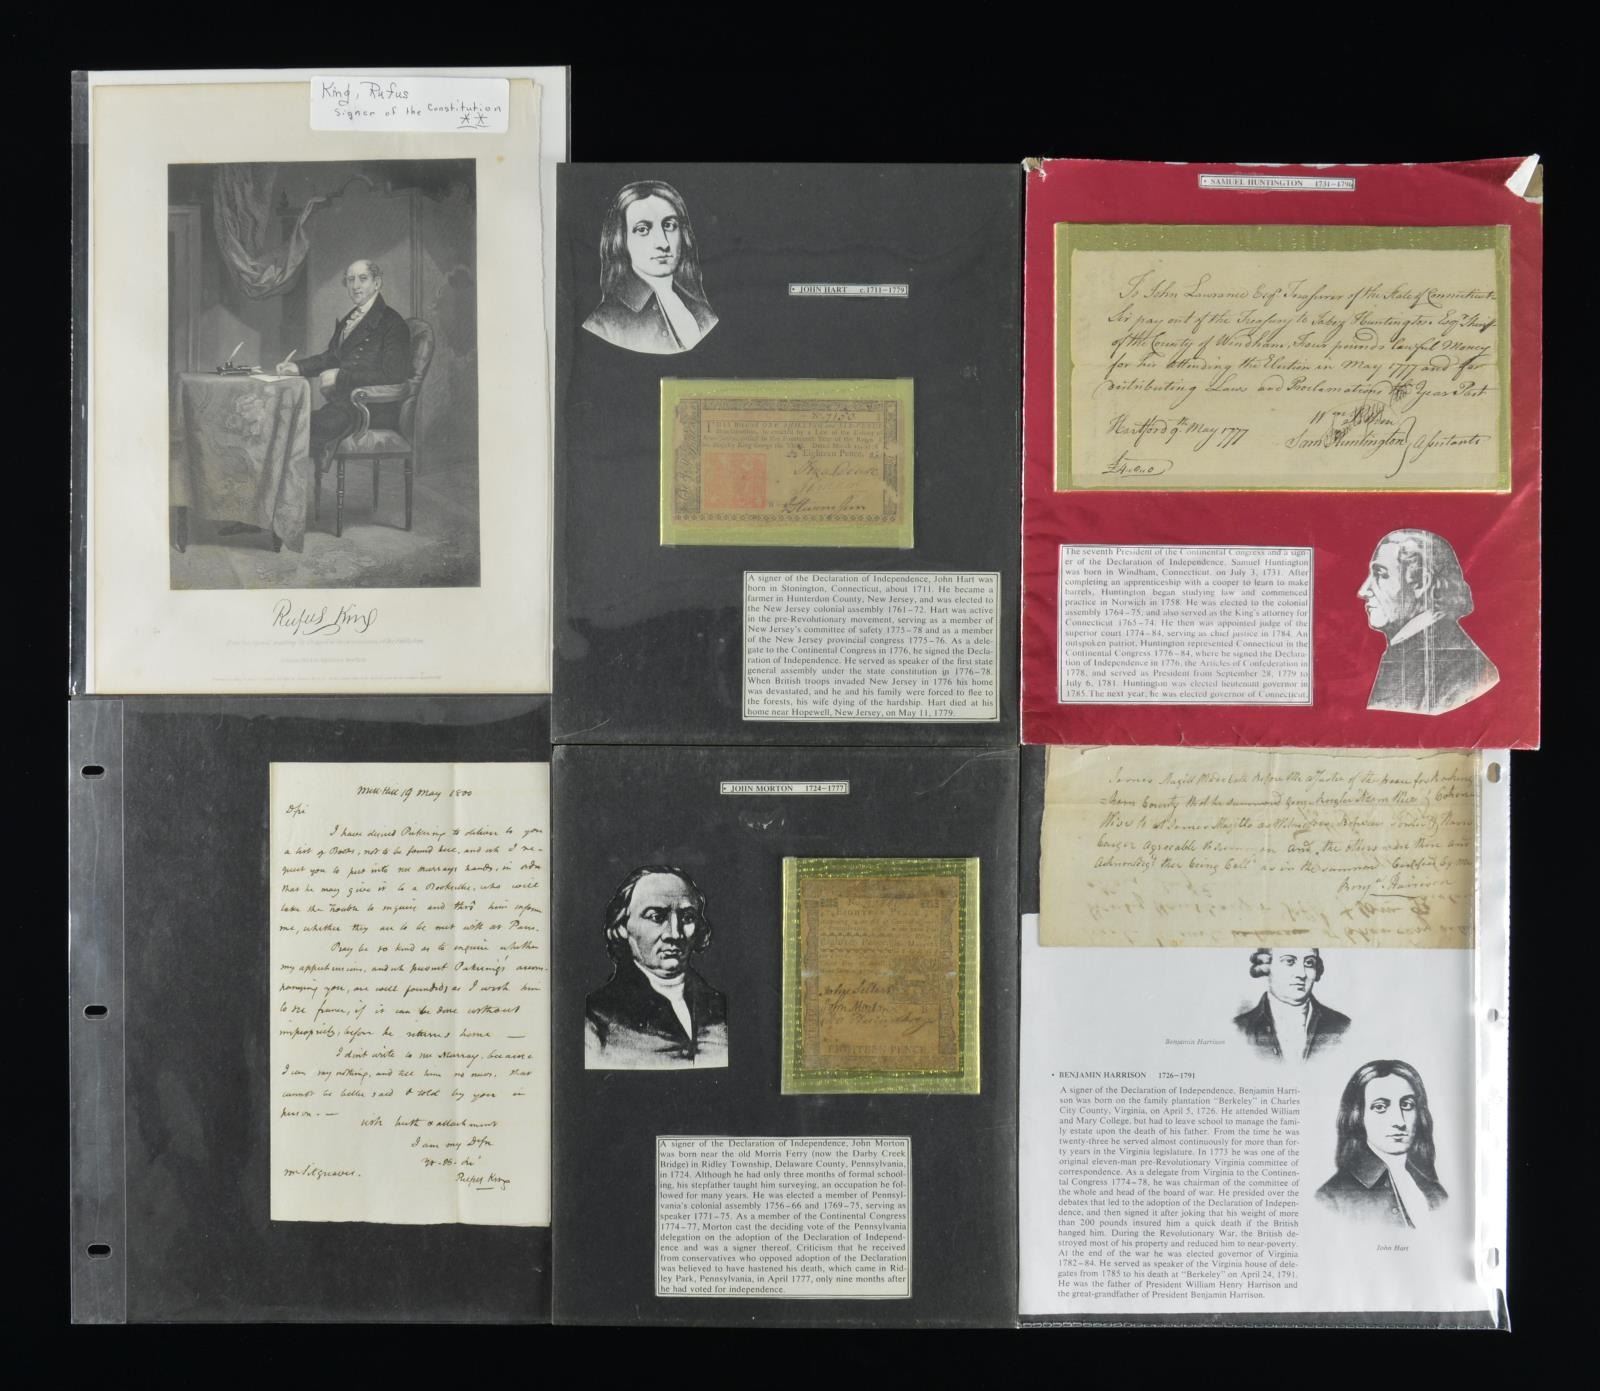 King, Rufus
Signer of the Constitution
**
Rufus King
• JOHN HART c.1711–1779
No. 7153
Eighteen Pence.
A signer of the Declaration of Independence, John Hart was
born in Stonington, Connecticut, about 1711. He became a
farmer in Hunterdon County, New Jersey, and was elected to
the New Jersey colonial assembly 1761–72. Hart was active
in the pre-Revolutionary movement, serving as a member of
New Jersey's committee of safety 1775–78 and as a member
of the New Jersey provincial congress 1775–76. As a dele-
gate to the Continental Congress in 1776, he signed the Decla-
ration of Independence. He served as speaker of the first state
general assembly under the state constitution in 1776–78.
When British troops invaded New Jersey in 1776 his home
was devastated, and he and his family were forced to flee to
the forests, his wife dying of the hardship. Hart died at his
home near Hopewell, New Jersey, on May 11, 1779.
• SAMUEL HUNTINGTON 1731–1796
To John Lawrance Esqr. Treasurer of the State of Connecticut
Sir pay out of the Treasury to Jabez Huntington Esqr. Sheriff
of the County of Windham, Four pounds lawful Money
for his attending the Election in May 1777 and for
distributing Laws and Proclamations the Year Past
Hartford 9th May 1777
Sam Huntington Assistants
£4.0.0
The seventh President of the Continental Congress and a sign-
er of the Declaration of Independence, Samuel Huntington
was born in Windham, Connecticut, on July 3, 1731. After
completing an apprenticeship with a cooper to learn to make
barrels, Huntington began studying law and commenced
practice in Norwich in 1758. He was elected to the colonial
assembly 1764–75, and also served as the King's attorney for
Connecticut 1765–74. He then was appointed judge of the
superior court 1774–84, serving as chief justice in 1784. An
outspoken patriot, Huntington represented Connecticut in the
Continental Congress 1776–84, where he signed the Declara-
tion of Independence in 1776, the Articles of Confederation in
1778, and served as President from September 28, 1779 to
July 6, 1781. Huntington was elected lieutenant governor in
1785. The next year, he was elected governor of Connecticut.
Mill Hill 19 May 1800
D Sir
I have desired Pickering to deliver to you
a list of Books, not to be found here, and wh I re-
quest you to put into mr murrays hands, in order
that he may give it to a Bookseller, who will
take the trouble to inquire and thro him inform
me, whether they are to be met with at Paris.
Pray be so kind as to inquire whether
my apprehensions, and wh prevent Pickering's accom-
panying you, are well founded; as I wish him
to see france, if it can be done without
impropriety, before he returns home —
I dont write to mr Murray, because
I can say nothing, and tell him no news, that
cannot be better said & told by you in
person. —
with truth & attachment
I am my D Sir
Rufus King
mr Sitgreaves.
• JOHN MORTON 1724–1777
EIGHTEEN PENCE
John Sellers
John Morton
EIGHTEEN PENCE
A signer of the Declaration of Independence, John Morton
was born near the old Morris Ferry (now the Darby Creek
Bridge) in Ridley Township, Delaware County, Pennsylvania,
in 1724. Although he had only three months of formal school-
ing, his stepfather taught him surveying, an occupation he fol-
lowed for many years. He was elected a member of Pennsyl-
vania's colonial assembly 1756–66 and 1769–75, serving as
speaker 1771–75. As a member of the Continental Congress
1774–77, Morton cast the deciding vote of the Pennsylvania
delegation on the adoption of the Declaration of Independ-
ence and was a signer thereof. Criticism that he received
from conservatives who opposed adoption of the Declaration
was believed to have hastened his death, which came in Rid-
ley Park, Pennsylvania, in April 1777, only nine months after
he had voted for independence.
James Magill Made Oath before the
County that he summond
Benja. Harrison
Benjamin Harrison
• BENJAMIN HARRISON 1726–1791
A signer of the Declaration of Independence, Benjamin Harri-
son was born on the family plantation "Berkeley" in Charles
City County, Virginia, on April 5, 1726. He attended William
and Mary College, but had to leave school to manage the fami-
ly estate upon the death of his father. From the time he was
twenty-three he served almost continuously for more than for-
ty years in the Virginia legislature. In 1773 he was one of the
original eleven-man pre-Revolutionary Virginia committee of
correspondence. As a delegate from Virginia to the Continen-
tal Congress 1774–78, he was chairman of the committee of
the whole and head of the board of war. He presided over the
debates that led to the adoption of the Declaration of Indepen-
dence, and then signed it after joking that his weight of more
than 200 pounds insured him a quick death if the British
hanged him. During the Revolutionary War, the British de-
stroyed most of his property and reduced him to near-poverty.
At the end of the war he was elected governor of Virginia
1782–84. He served as speaker of the Virginia house of dele-
gates from 1785 to his death at "Berkeley" on April 24, 1791.
He was the father of President William Henry Harrison and
the great-grandfather of President Benjamin Harrison.
John Hart